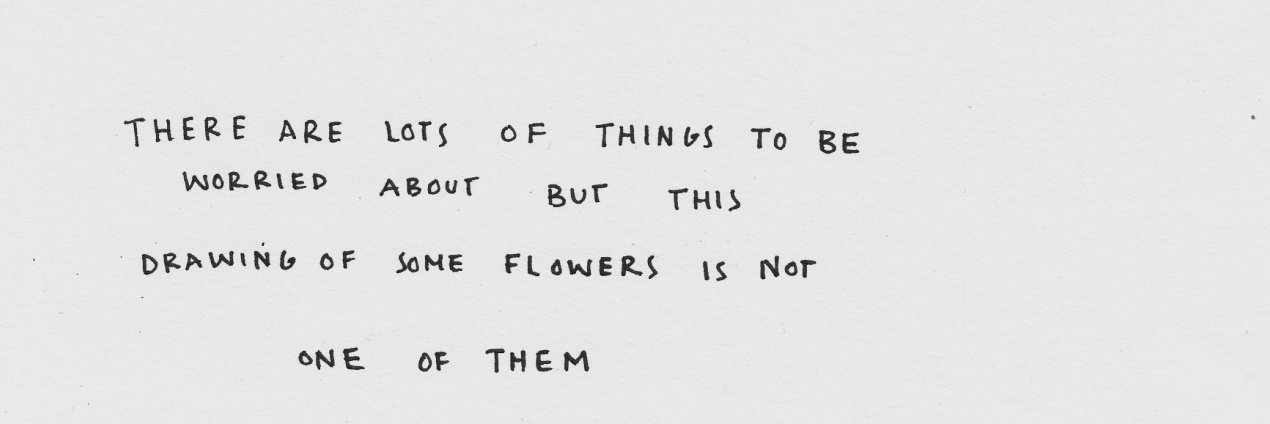 THERE ARE LOTS OF THINGS TO BE
WORRIED ABOUT BUT THIS
DRAWING OF SOME FLOWERS IS NOT
ONE OF THEM